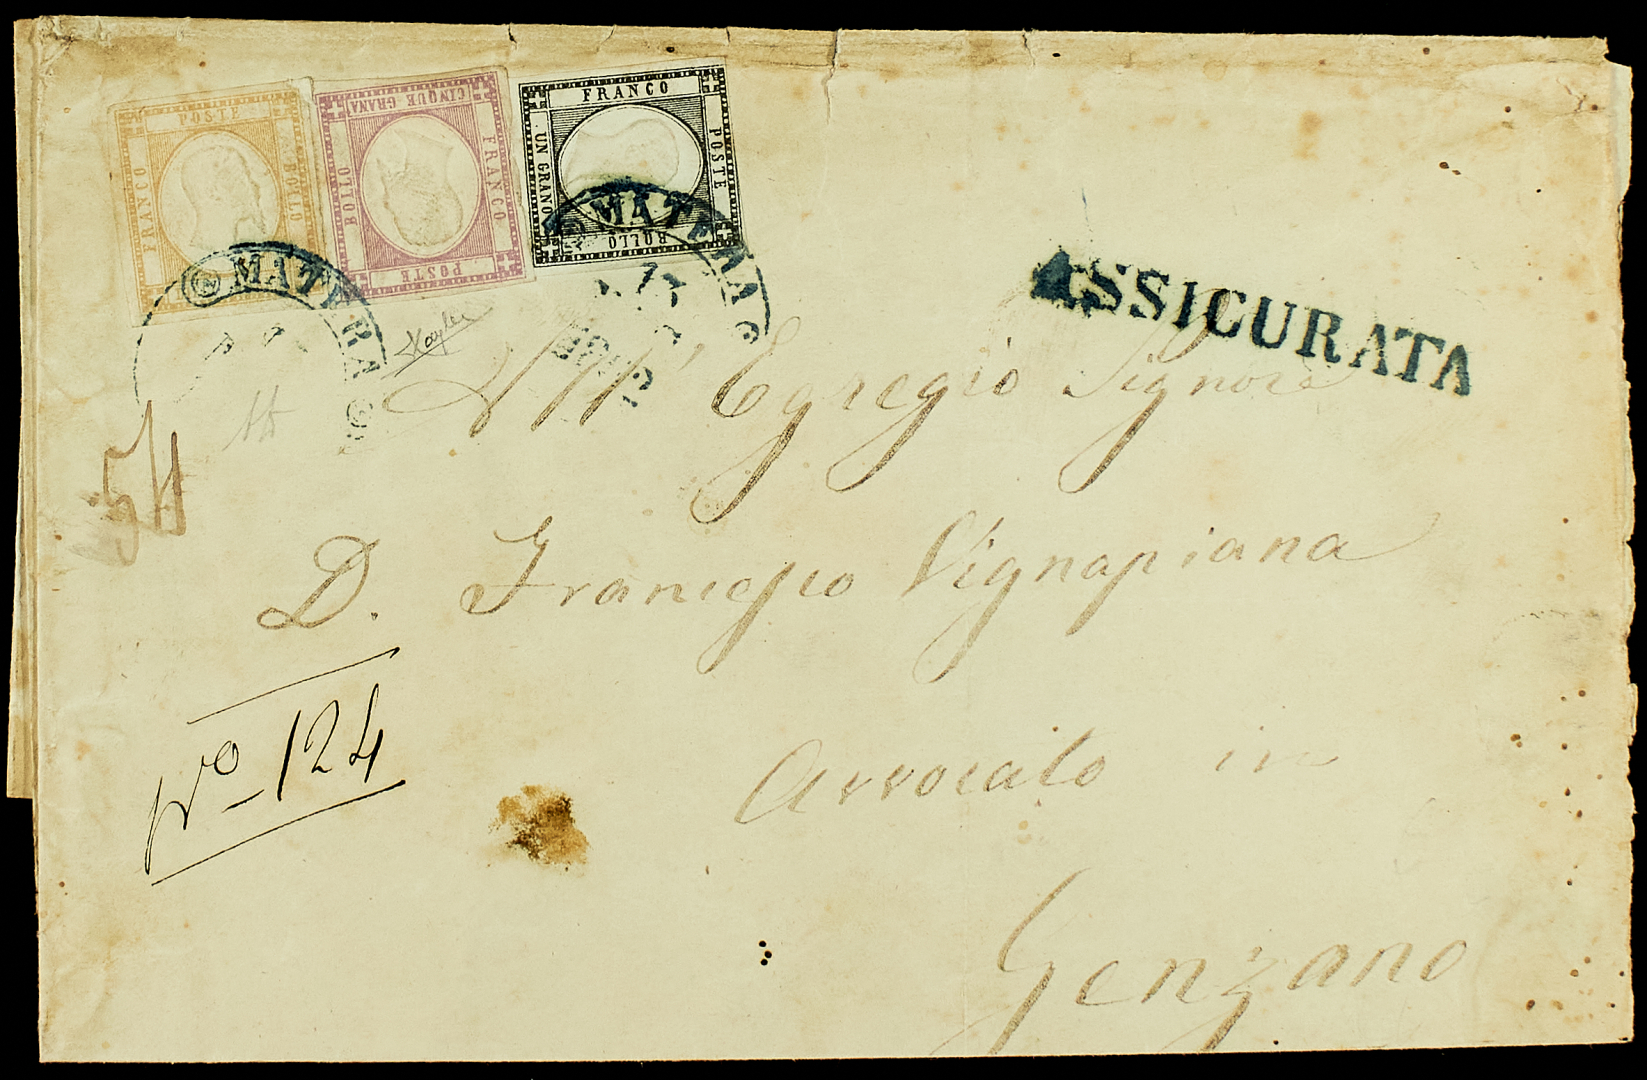 FRANCO POSTE BOLLO
BOLLO CINQUE GRANA FRANCO POSTE
UN GRANO FRANCO POSTE BOLLO
MATERA
MATERA
ASSICURATA
All' Egregio Signore
D. Francesco Vignapiana
Avvocato in
Genzano
No 124